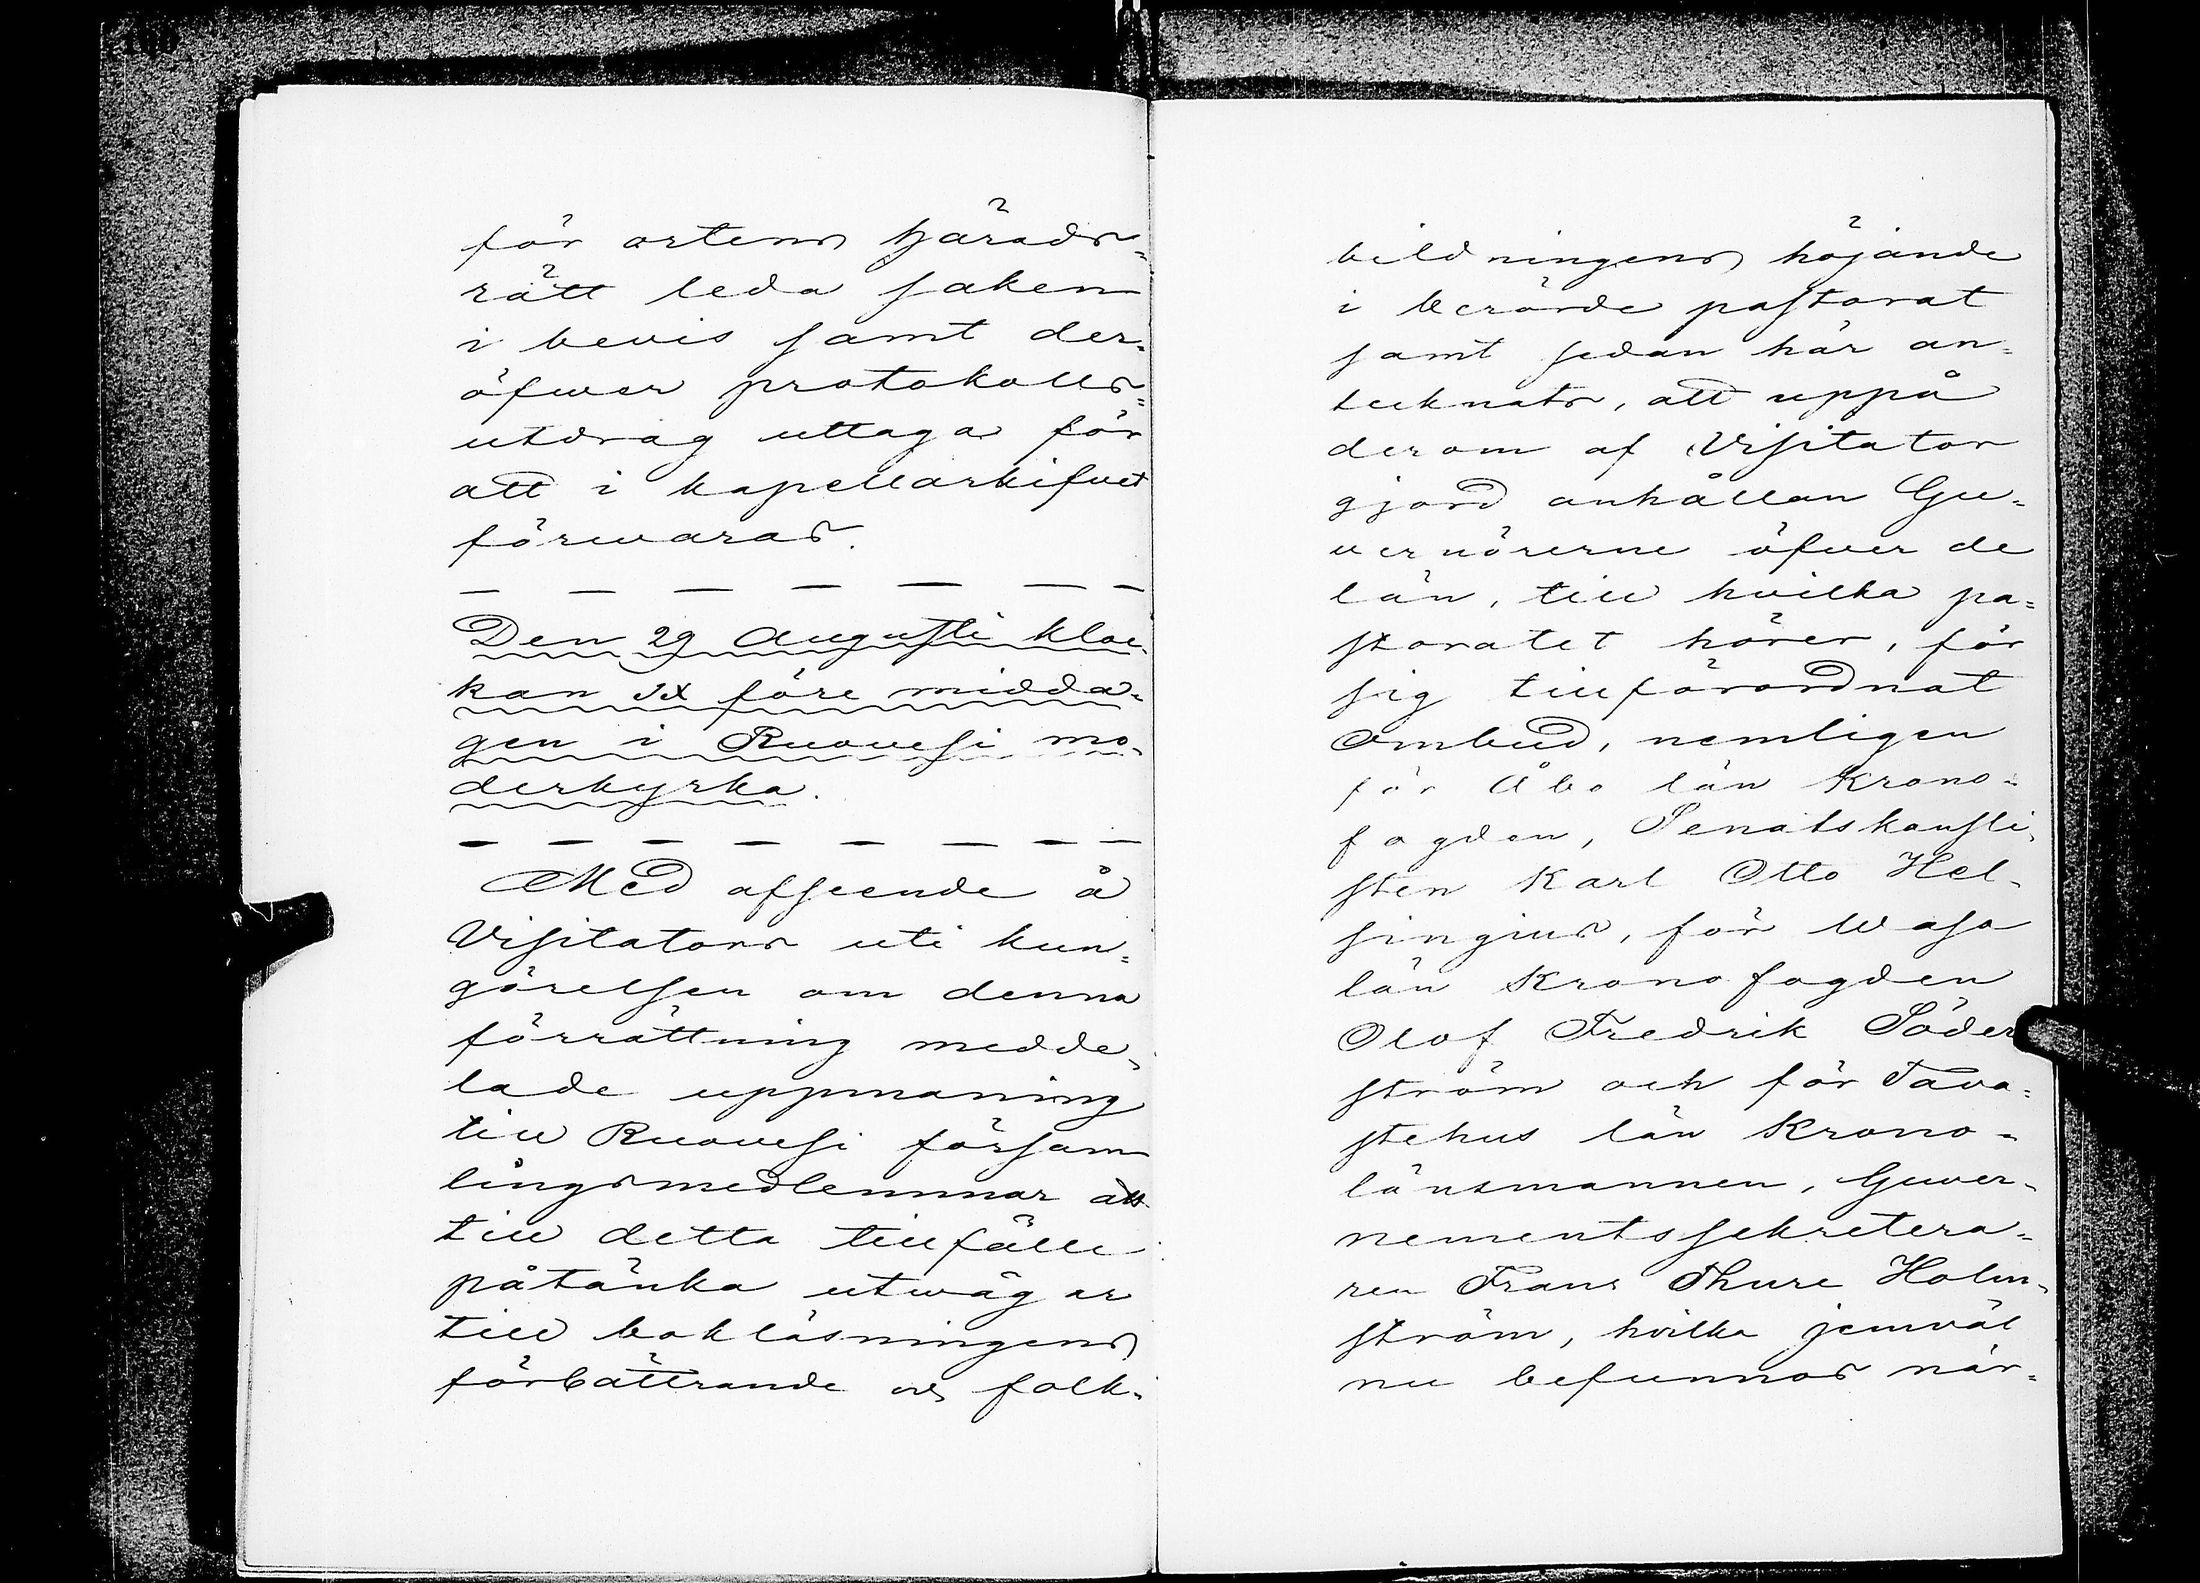 för ortens härads-
rätt leda saken
i bevis samt der-
öfwer protokolls-
utdrag uttaga för
att i kapellarkifvet
förwaras.
Den 29 Augusti kloc-
kan IX före midda-
gen i Ruovesi mo-
derkyrka.
Med afseende å
Visitators uti kun-
görelsen om denna
förrättning medde-
lade uppmaning
till Ruovesi försam
lingsmedlemmar att
till detta tillfälle
påtänka utwägar
till bokläsningens
förbättrande och folk-
bildningens höjande
i berörde pastorat
samt sedan här an-
tecknats, att uppå
derom af Visitator
gjord anhållan Gu-
vernörerne öfver de
län, till hvilka pa-
storatet hörer, för
sig tillförordnat
Ombud, nemligen
för Åbo län Krono-
fogden, Senatskansli-
sten Karl Otto Hel-
singius, för Wasa
län Kronofogden
Olof Fredrik Söder
ström och för Tava-
stehus län Krono-
länsmannen, Guver-
nementssekretera-
ren Frans Thure Holm-
ström, hvilka jemväl
nu befunnos när-